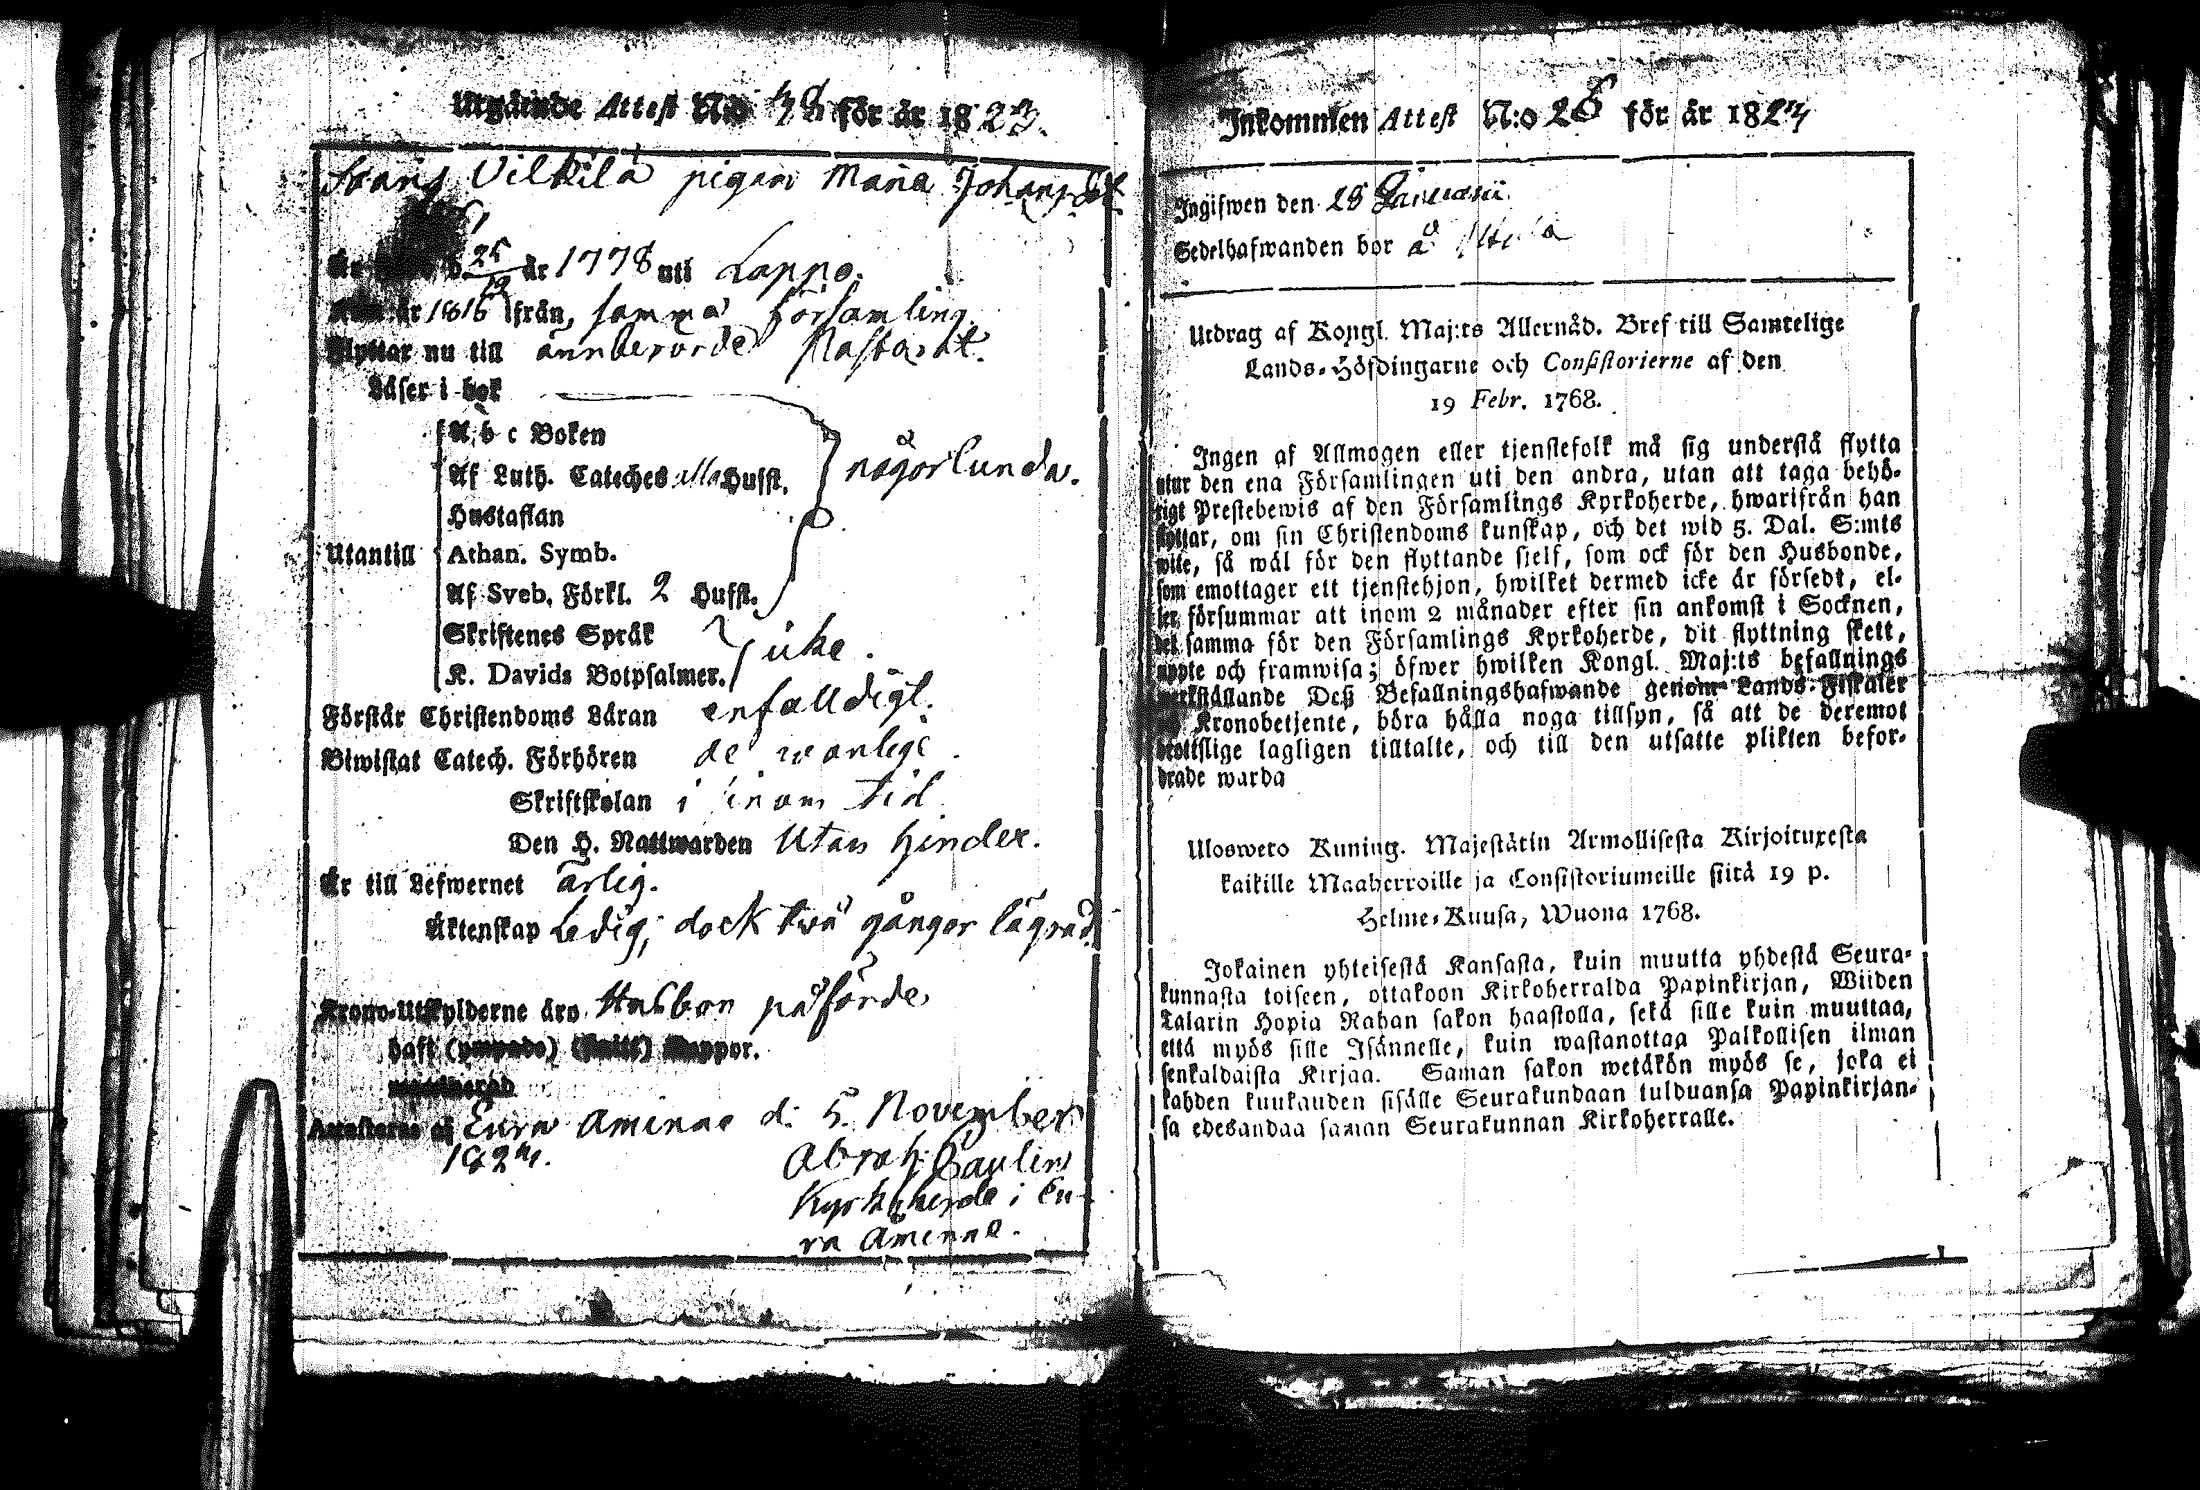 Utgående Attest N:o för år 1823.
Vilkilä pigan Maria Johansdr
25/12 år 1778 uti Lappo.
år 1816 ifrån, samma Församling.
Flyttar nu till ännberörde Pastorat.
Läser i bok
A b c Boken
Af Luth. Cateches alla Hufst. någorlunda.
Hustaflan
Utantill Athan. Symb.
Af Sveb. Förkl. 2 Hufst.
Skriftenes Språk icke.
K. Davids Botpsalmer.
Förstår Christendoms Läran enfalldigt.
Biwistat Catech. Förhören de wanlige.
Skriftskolan i sinom tid
Den H. Nattwarden Utan hinder.
Är till Lefwernet ärlig.
Äktenskap Ledig, dock två gånger lägrad.
Krono-Utskylderne äro Husbon påförde
haft Koppor.
Attesteras af Eura Åminne d. 5. November
182
Abrah. Paulin
Kyrkoherde i Eu-
ra Åminne.
Inkommen Attest N:o 26 för år 1824
Ingifwen den 28 Januarii
Sedelhafwanden bor å
Utdrag af Kongl. Maj:ts Allernåd. Bref till Samtelige
Lands-Höfdingarne och Consistorierne af den
19 Febr. 1768.
Ingen af Allmogen eller tjenstefolk må sig understå flytta
utur den ena Församlingen uti den andra, utan att taga behö-
rigt Prestebewis af den Församlings Kyrkoherde, hwarifrån han
flyttar, om sin Christendoms kunskap, och det wid 5. Dal. S:mts
wite, så wäl för den flyttande sielf, som ock för den Husbonde,
som emottager ett tjenstehjon, hwilket dermed icke är försedt, el-
ler försummar att inom 2 månader efter sin ankomst i Socknen,
det samma för den Församlings Kyrkoherde, dit flyttning skett,
uppte och framwisa; öfwer hwilken Kongl. Maj:ts befallnings
werkställande Deß Befallningshafwande genom Lands-Fiskaler
Kronobetjente, böra hålla noga tillsyn, så att de deremot
brottslige lagligen tilltalte, och till den utsatte plikten befor-
drade warda
Ulosweto Kuning. Majestätin Armollisesta Kirjoituxesta
kaikille Maaherroille ja Consistoriumeille siitä 19 p.
Helme-Kuusa, Wuona 1768.
Jokainen yhteisestä Kansasta, kuin muutta yhdestä Seura-
kunnasta toiseen, ottakoon Kirkoherralda Papinkirjan, Wiiden
Talarin Hopia Rahan sakon haastolla, sekä sille kuin muuttaa,
että myös sille Isännelle, kuin wastanottaa Palkollisen ilman
senkaldaista Kirjaa. Saman sakon wetäkön myös se, joka ei
kahden kuukauden sisälle Seurakundaan tulduansa Papinkirjan-
sa edesandaa saman Seurakunnan Kirkoherralle.